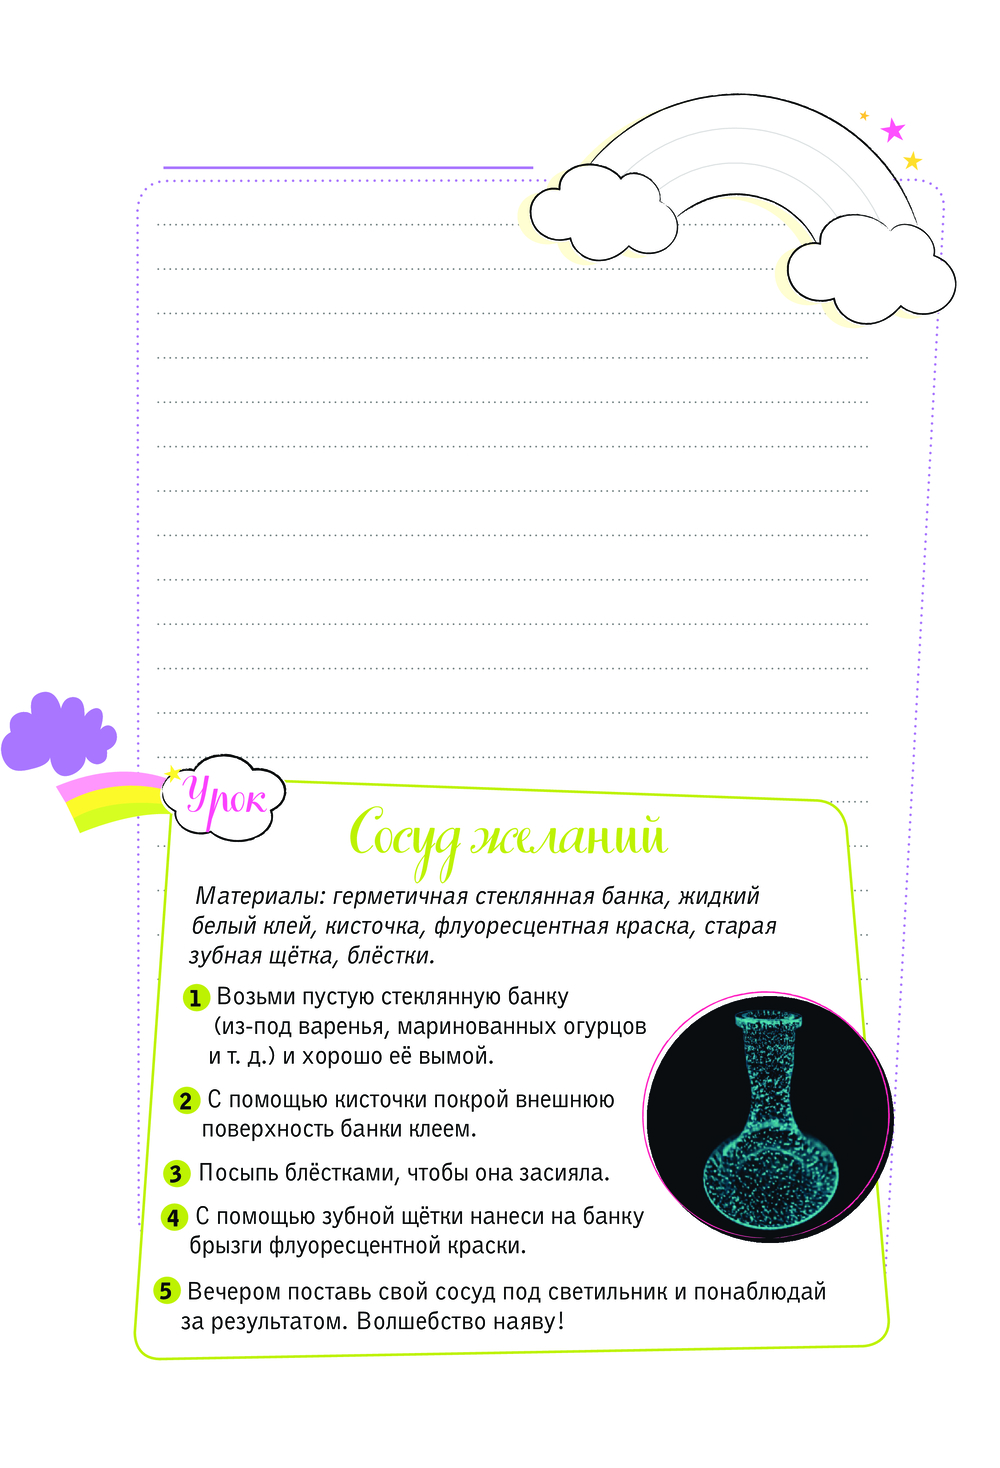 Урок
Сосуд желаний
Материалы: герметичная стеклянная банка, жидкий
белый клей, кисточка, флуоресцентная краска, старая
зубная щётка, блёстки.
1 Возьми пустую стеклянную банку
(из-под варенья, маринованных огурцов
и т. д.) и хорошо её вымой.
2 С помощью кисточки покрой внешнюю
поверхность банки клеем.
3 Посыпь блёстками, чтобы она засияла.
4 С помощью зубной щётки нанеси на банку
брызги флуоресцентной краски.
5 Вечером поставь свой сосуд под светильник и понаблюдай
за результатом. Волшебство наяву!